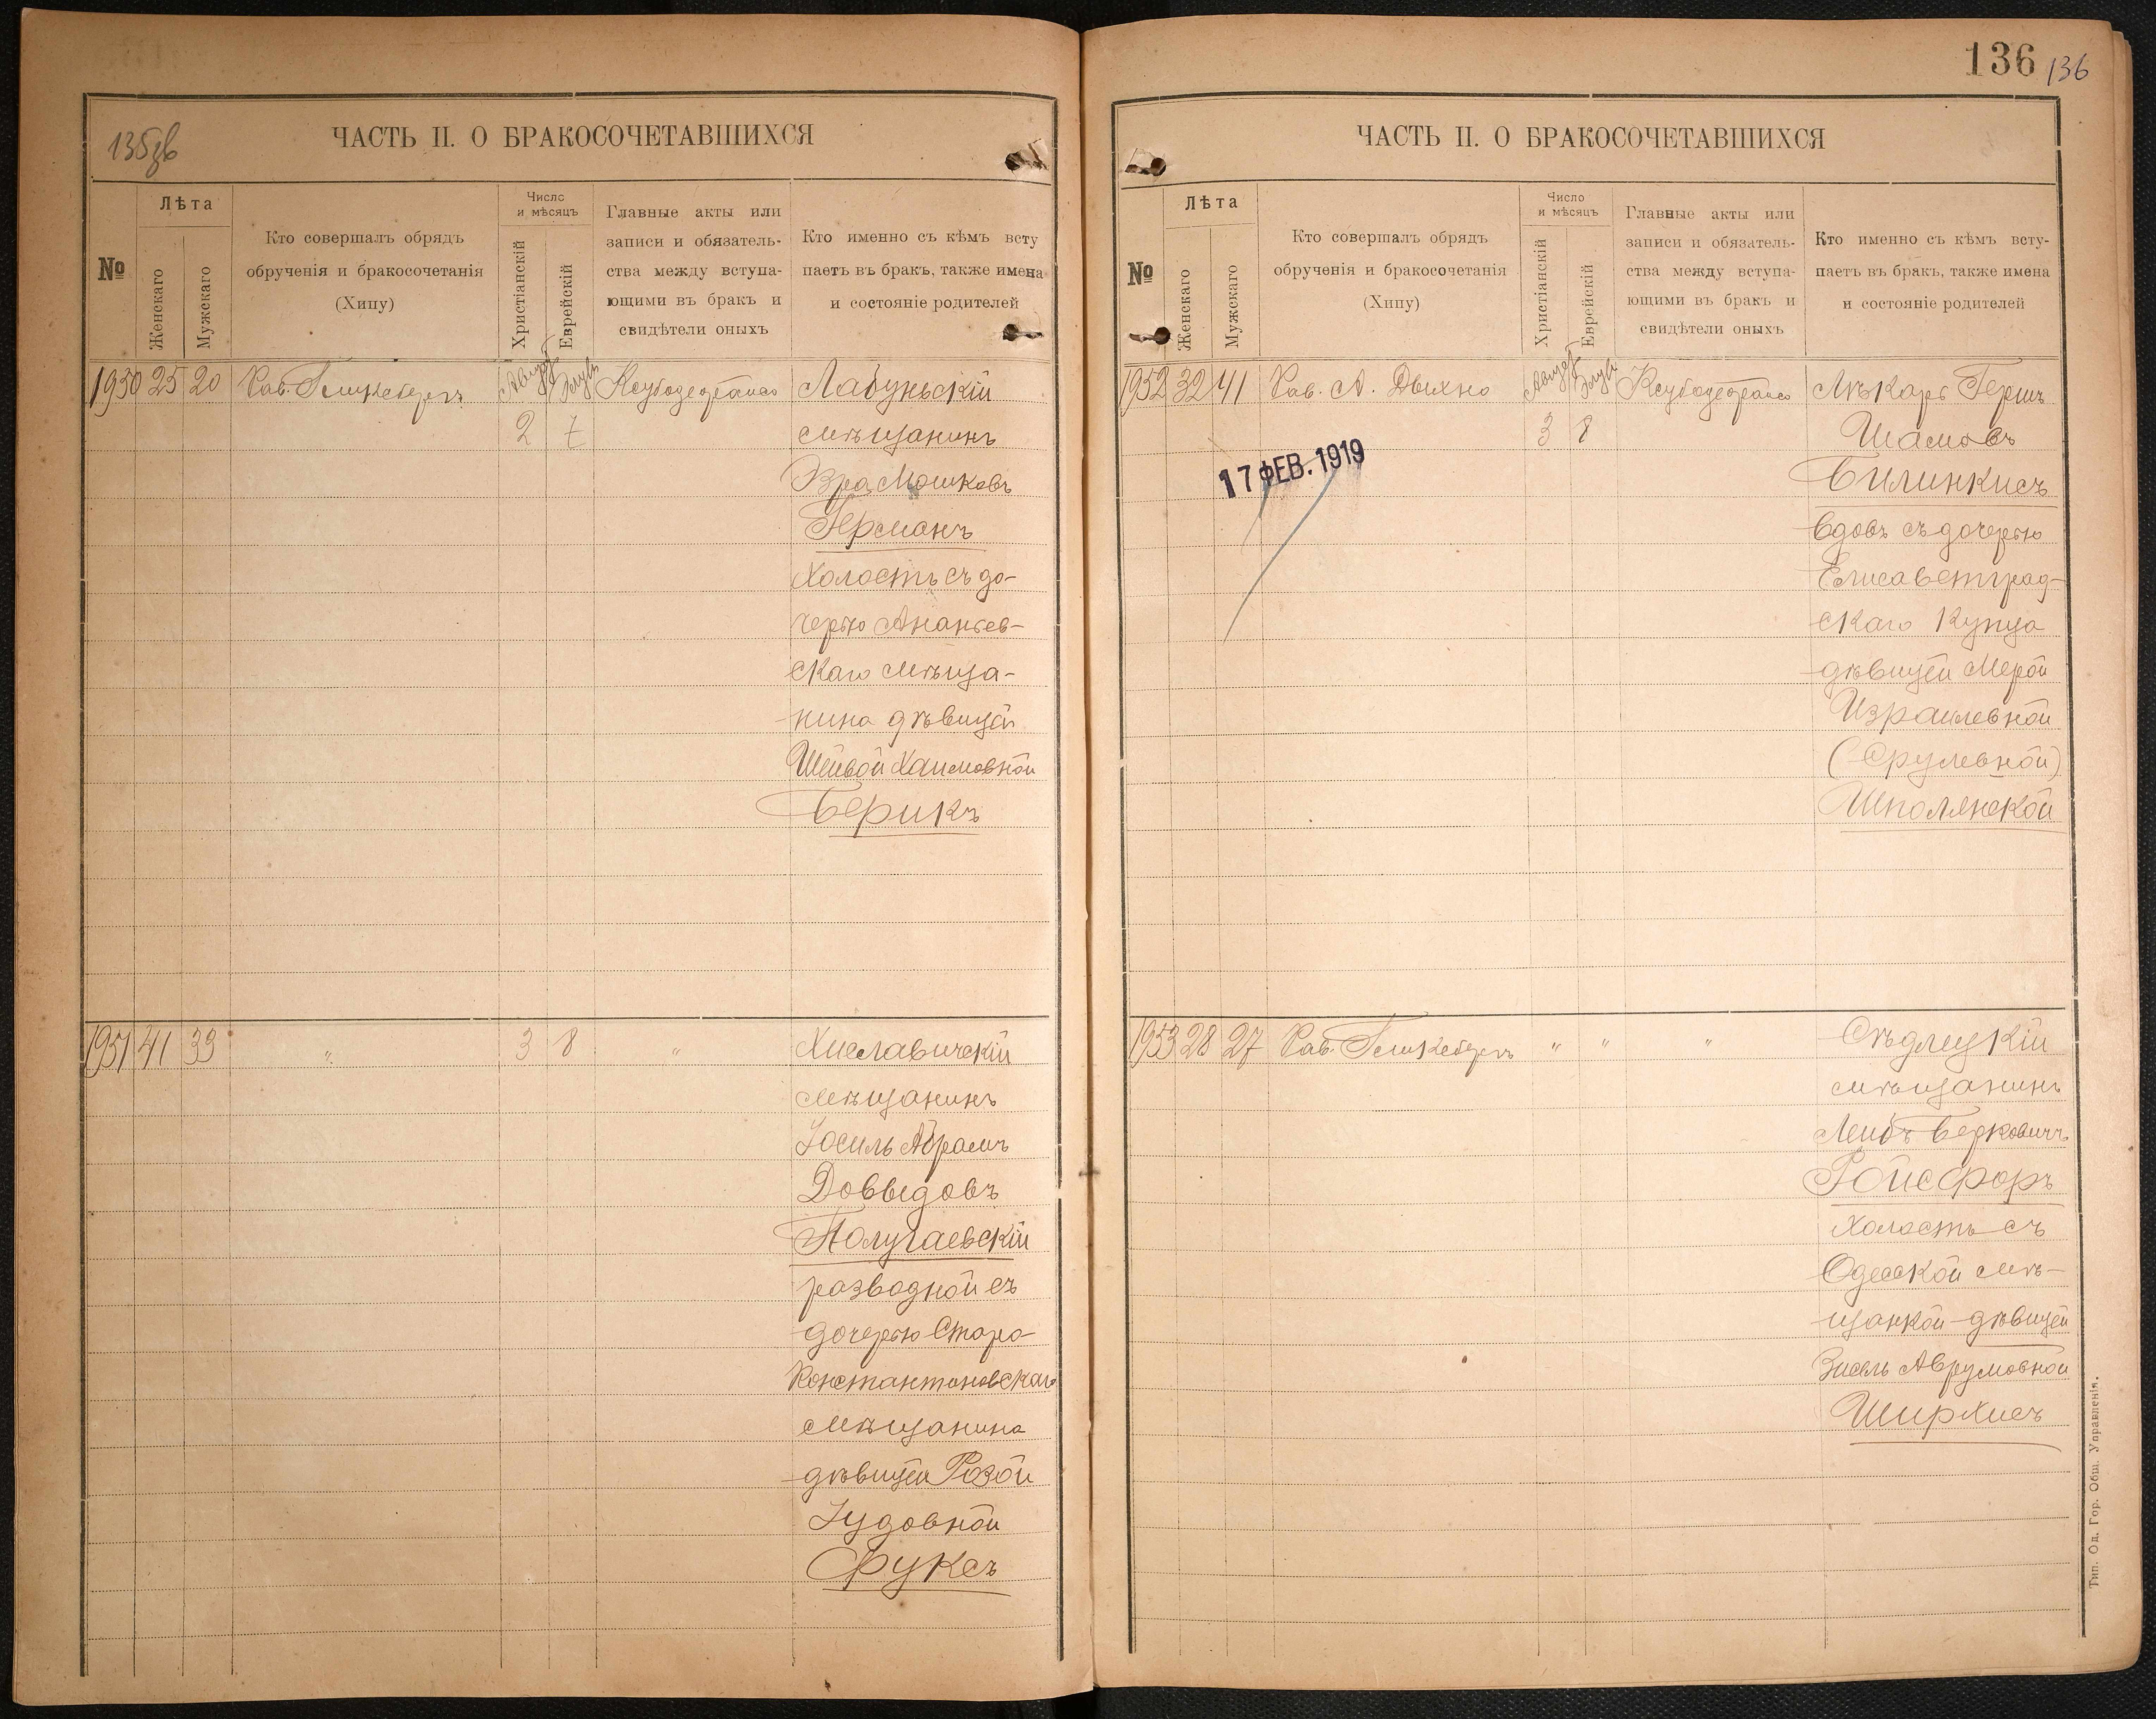 135зв
ЧАСТЬ II. О БРАКОСОЧЕТАВШИХСЯ
№
Лѣта
Женскаго
Мужскаго
Кто совершалъ обрядъ
обрученія и бракосочетанія
(Хипу)
Число
и мѣсяцъ
Христіанскій
Еврейскій
Главные акты или
записи и обязатель-
ства между вступа-
ющими въ бракъ и
свидѣтели оныхъ
Кто именно съ кѣмъ всту
паетъ въ бракъ, также имена
и состояніе родителей
1950 25 20 Рав. Августъ Элулъ Лабунскій
2 7 мѣщанинъ
Эзра Мошковъ
Германъ
Холостъ съ до-
черью Ананьев-
скаго мѣща-
нина дѣвицей
Шейвой Хаимовной
Берикъ
1951 41 33 " 3 8 " Хиславичскій
мѣщанинъ
Іосиль Абрамъ
Доввидовъ
Полугаевскій
разводной съ
дочерью Старо-
Константиновскаго
мѣщанина
дѣвицей Розой
Іудовной
Фуксъ
136 136
ЧАСТЬ II. О БРАКОСОЧЕТАВШИХСЯ
№
Лѣта
Женскаго
Мужскаго
Кто совершалъ обрядъ
обрученія и бракосочетанія
(Хипу)
Число
и мѣсяцъ
Христіанскій
Еврейскій
Главные акты или
записи и обязатель-
ства между вступа-
ющими въ бракъ и
свидѣтели оныхъ
Кто именно съ кѣмъ всту-
паетъ въ бракъ, также имена
и состояніе родителей
1952 32 41 Рав. А. Дыхно Августъ Элулъ Лѣкарь Гершъ
3 8 Шамовъ
17 ФЕВ. 1919
Билинкисъ
вдовъ съ дочерью
Елисаветград-
скаго Купца
дѣвицей Мерой
Израилевной
(Срулевной)
Шполянской
1953 28 27 Рав. " " " Сѣдлецкій
мѣщанинъ
Лейбъ Берковичъ
Ройсфоръ
Холостъ съ
Одесской мѣ-
щанкой дѣвицей
Зисель Аврумовной
Ширхисъ
Тип. Од. Гор. Общ. Управленія.